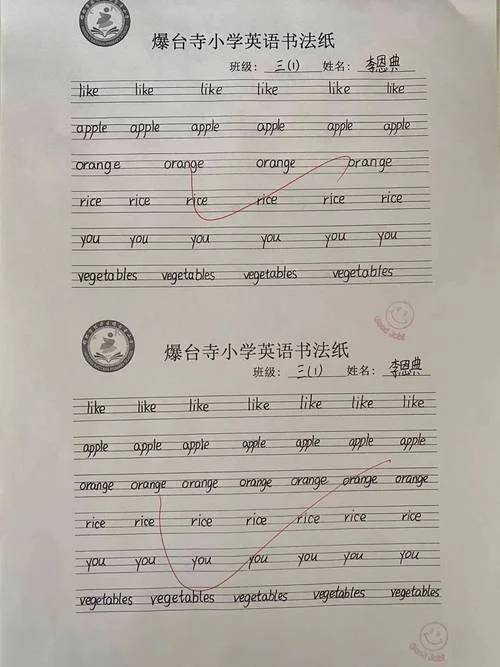 爆台寺小学英语书法纸
班级： 三(1) 姓名： 李恩典
like like like like like like
apple apple apple apple apple apple
orange orange orange orange
rice rice rice rice rice rice
you you you you you you
vegetables vegetables vegetables vegetables
Good Job!
爆台寺小学英语书法纸
班级： 三(1) 姓名： 李恩典
like like like like like like like
apple apple apple apple apple apple apple
orange orange orange orange orange orange orange
rice rice rice rice rice rice rice
you you you you you you you
vegetables vegetables vegetables vegetables vegetables
Good Job!